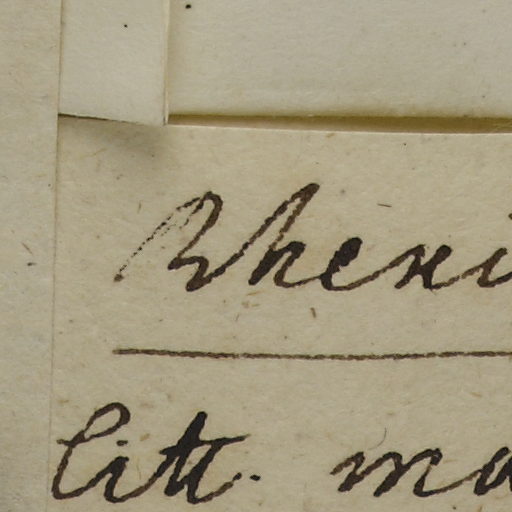 Rhexi
litt. ma